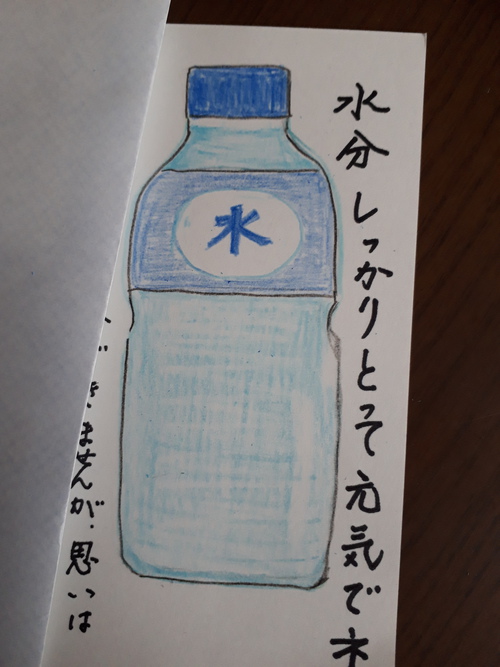 水分しっかりとって元気でネ
水
きませんが、思いは